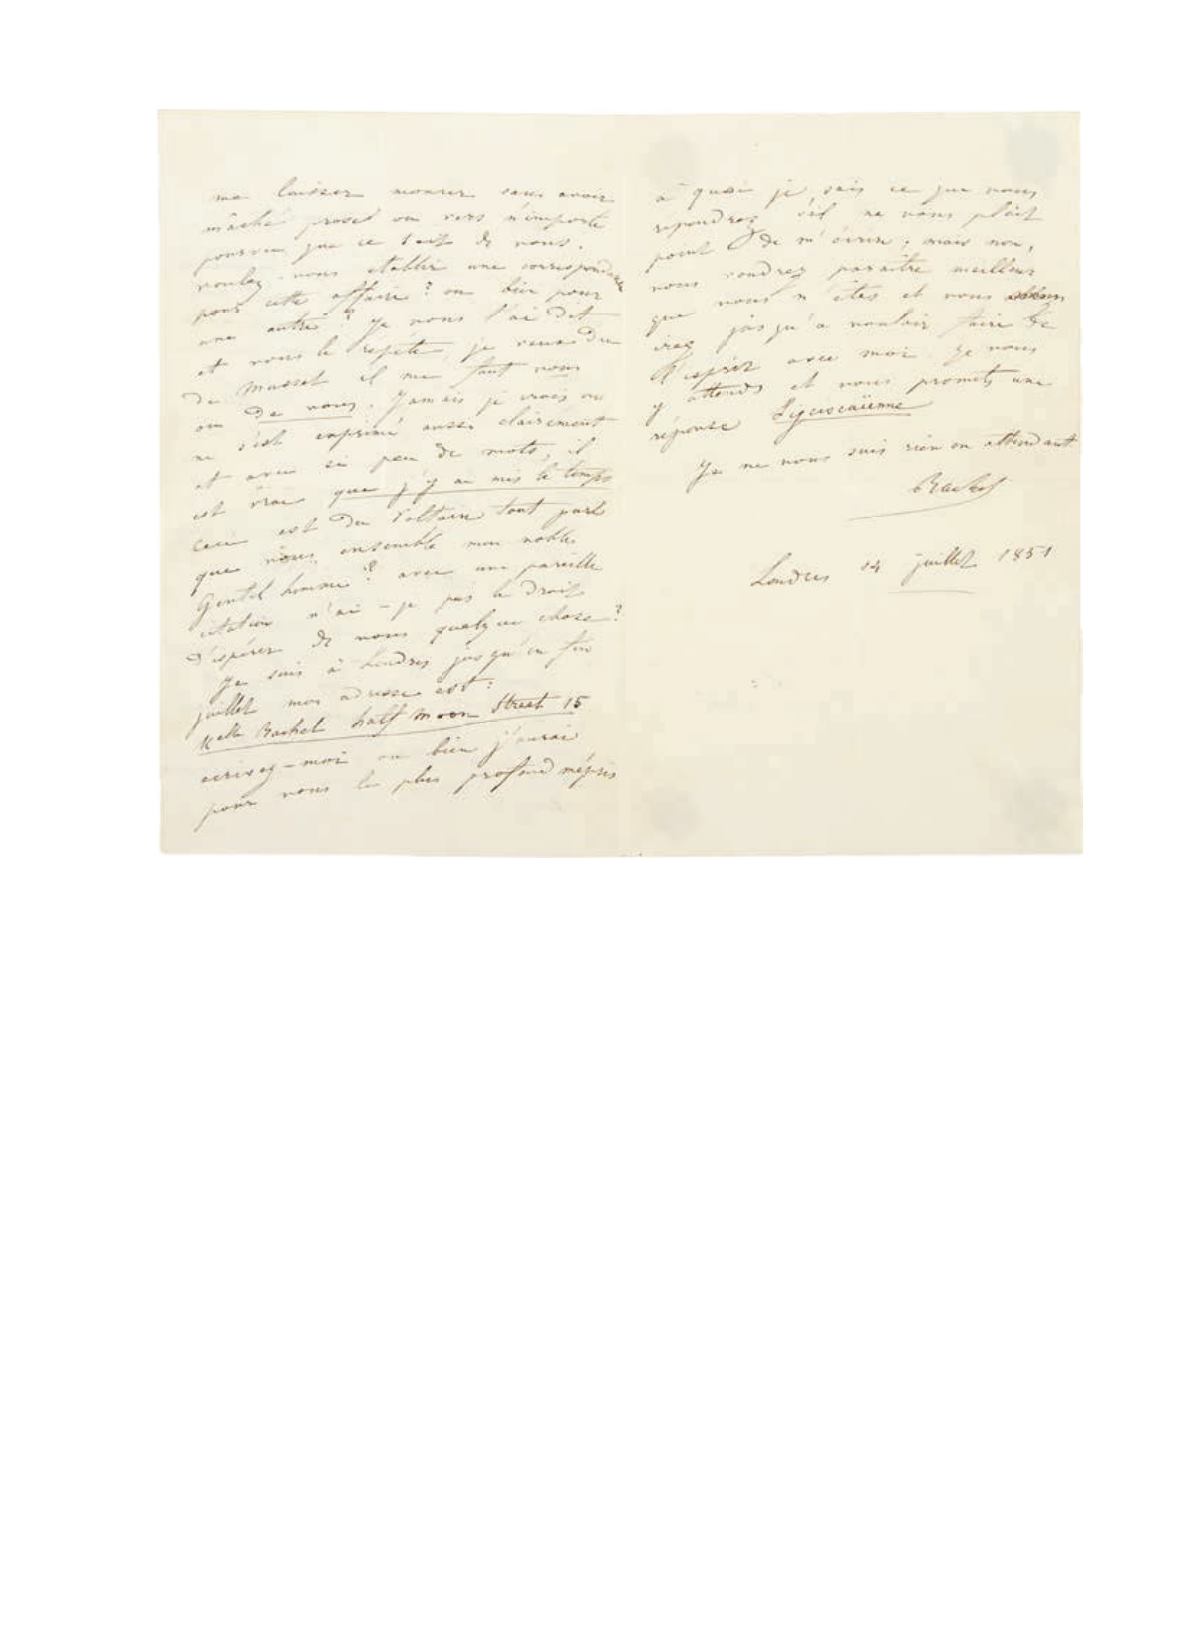 me laisser mourir sans avoir
mâché prose ou vers n'importe
pourvu que ce soit de vous.
voulez-vous etablir une correspondance
pour cette affaire? ou bien pour
une autre? je vous l'ai dit
et vous le repète, je veux du
de Musset il me faut vous
ou de vous. Jamais je crois on
ne s'est exprimé aussi clairement
et avec si peu de mots, il
est vrai que j'y ai mis le temps
ceci est du Voltaire tout parle
que vous ensemble mon noble
Gentilhomme? avec une pareille
citation n'ai-je pas le droit
d'espérer de vous quelque chose?
Je suis à Londres jusqu'en fin
juillet mon adresse est:
Melle Rachel half Moon Street 15
ecrivez-moi ou bien j'aurai
pour vous le plus profond mépris
à quoi je sais ce que vous
repondrez s'il ne vous plait
point de m'écrire, mais non,
vous voudrez paraitre meilleur
que vous n'êtes et vous
irez jusqu'à vouloir faire de
l'esprit avec moi. Je vous
y attends et vous promets une
réponse
Je ne vous suis rien en attendant
Rachel
Londres 14 juillet 1851